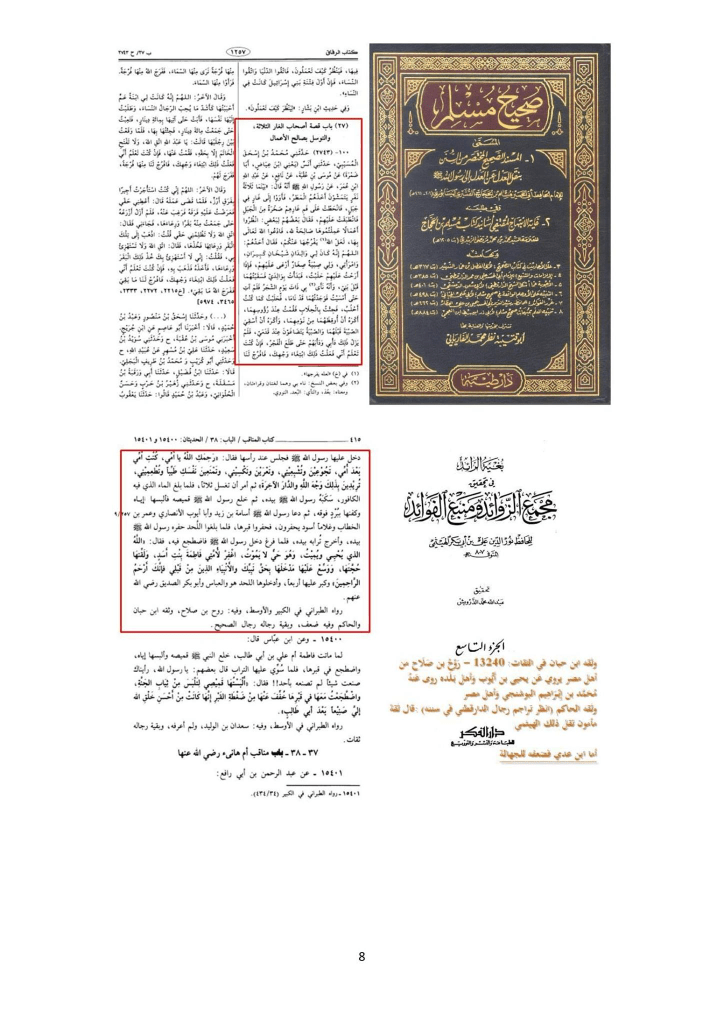 ب ٢٧/ ح ٢٧٤٣
١٢٥٧
كتاب الرقاق
فِيهَا، فَيَنْظُرُ كَيْفَ تَعْمَلُونَ، فَاتَّقُوا الدُّنْيَا وَاتَّقُوا
النِّسَاءَ، فَإِنَّ أَوَّلَ فِتْنَةِ بَنِي إِسْرَائِيلَ كَانَتْ فِي
النِّسَاءِ».
وَفِي حَدِيثِ ابْنِ بَشَّارٍ: «لِيَنْظُرَ كَيْفَ تَعْمَلُونَ».
(٢٧) باب قصة أصحاب الغار الثلاثة،
والتوسل بصالح الأعمال
١٠٠- (٢٧٤٣) حَدَّثَنِي مُحَمَّدُ بْنُ إِسْحَقَ
الْمُسَيَّبِيُّ، حَدَّثَنِي أَنَسٌ (يَعْنِي ابْنَ عِيَاضٍ، أَبَا
ضَمْرَةَ) عَنْ مُوسَى بْنِ عُقْبَةَ، عَنْ نَافِعٍ، عَنْ عَبْدِ اللهِ
ابْنِ عُمَرَ، عَنْ رَسُولِ اللهِ ﷺ أَنَّهُ قَالَ: «بَيْنَمَا ثَلَاثَةُ
نَفَرٍ يَتَمَشَّوْنَ أَخَذَهُمُ الْمَطَرُ، فَأَوَوْا إِلَى غَارٍ فِي
جَبَلٍ، فَانْحَطَّتْ عَلَى فَمِ غَارِهِمْ صَخْرَةٌ مِنَ الْجَبَلِ
فَانْطَبَقَتْ عَلَيْهِمْ، فَقَالَ بَعْضُهُمْ لِبَعْضٍ: انْظُرُوا
أَعْمَالًا عَمِلْتُمُوهَا صَالِحَةً لله، فَادْعُوا اللهَ تَعَالَى
بِهَا، لَعَلَّ اللهَ يَفْرُجُهَا عَنْكُمْ، فَقَالَ أَحَدُهُمْ:
اللهُمَّ إِنَّهُ كَانَ لِي وَالِدَانِ شَيْخَانِ كَبِيرَانِ،
وَامْرَأَتِي، وَلِي صِبْيَةٌ صِغَارٌ أَرْعَى عَلَيْهِمْ، فَإِذَا
أَرَحْتُ عَلَيْهِمْ حَلَبْتُ، فَبَدَأْتُ بِوَالِدَيَّ فَسَقَيْتُهُمَا
قَبْلَ بَنِيَّ، وَأَنَّهُ نَأَى بِي ذَاتَ يَوْمٍ الشَّجَرُ فَلَمْ آتِ
حَتَّى أَمْسَيْتُ فَوَجَدْتُهُمَا قَدْ نَامَا، فَحَلَبْتُ كَمَا كُنْتُ
أَحْلُبُ، فَجِئْتُ بِالْحِلَابِ فَقُمْتُ عِنْدَ رُؤُوسِهِمَا،
أَكْرَهُ أَنْ أُوقِظَهُمَا مِنْ نَوْمِهِمَا، وَأَكْرَهُ أَنْ أَسْقِيَ
الصِّبْيَةَ قَبْلَهُمَا وَالصِّبْيَةُ يَتَضَاغَوْنَ عِنْدَ قَدَمَيَّ، فَلَمْ
يَزَلْ ذَلِكَ دَأْبِي وَدَأْبَهُمْ حَتَّى طَلَعَ الْفَجْرُ، فَإِنْ كُنْتَ
تَعْلَمُ أَنِّي فَعَلْتُ ذَلِكَ ابْتِغَاءَ وَجْهِكَ، فَافْرُجْ لَنَا
(١) في (خ) «لعله يفرجها».
(٢) وفي بعض النسخ: ناء بي وهما لغتان وقراءتان،
ومعناه: بعُد، والنأي: البُعد. النووي.
مِنْهَا فُرْجَةً نَرَى مِنْهَا السَّمَاءَ، فَفَرَجَ اللهُ مِنْهَا فُرْجَةً،
فَرَأَوْا مِنْهَا السَّمَاءَ.
وَقَالَ الْآخَرُ: اللهُمَّ إِنَّهُ كَانَتْ لِيَ ابْنَةُ عَمٍّ
أَحْبَبْتُهَا كَأَشَدِّ مَا يُحِبُّ الرِّجَالُ النِّسَاءَ، وَطَلَبْتُ
إِلَيْهَا نَفْسَهَا، فَأَبَتْ حَتَّى آتِيَهَا بِمِائَةِ دِينَارٍ، فَتَعِبْتُ
حَتَّى جَمَعْتُ مِائَةَ دِينَارٍ، فَجِئْتُهَا بِهَا، فَلَمَّا وَقَعْتُ
بَيْنَ رِجْلَيْهَا قَالَتْ: يَا عَبْدَ اللهِ اتَّقِ اللهَ، وَلَا تَفْتَحِ
الْخَاتَمَ إِلَّا بِحَقِّهِ، فَقُمْتُ عَنْهَا، فَإِنْ كُنْتَ تَعْلَمُ أَنِّي
فَعَلْتُ ذَلِكَ ابْتِغَاءَ وَجْهِكَ، فَافْرُجْ لَنَا مِنْهَا فُرْجَةً،
فَفَرَجَ لَهُمْ.
وَقَالَ الْآخَرُ: اللهُمَّ إِنِّي كُنْتُ اسْتَأْجَرْتُ أَجِيرًا
بِفَرَقِ أَرُزٍّ، فَلَمَّا قَضَى عَمَلَهُ قَالَ: أَعْطِنِي حَقِّي
فَعَرَضْتُ عَلَيْهِ فَرَقَهُ فَرَغِبَ عَنْهُ، فَلَمْ أَزَلْ أَزْرَعُهُ
حَتَّى جَمَعْتُ مِنْهُ بَقَرًا وَرِعَاءَهَا، فَجَاءَنِي فَقَالَ:
اتَّقِ اللهَ وَلَا تَظْلِمْنِي حَقِّي قُلْتُ: اذْهَبْ إِلَى تِلْكَ
الْبَقَرِ وَرِعَائِهَا فَخُذْهَا، فَقَالَ: اتَّقِ اللهَ وَلَا تَسْتَهْزِئْ
بِي، فَقُلْتُ: إِنِّي لَا أَسْتَهْزِئُ بِكَ خُذْ ذَلِكَ الْبَقَرَ
وَرِعَاءَهَا، فَأَخَذَهُ فَذَهَبَ بِهِ، فَإِنْ كُنْتَ تَعْلَمُ أَنِّي
فَعَلْتُ ذَلِكَ ابْتِغَاءَ وَجْهِكَ، فَافْرُجْ لَنَا مَا بَقِيَ
فَفَرَجَ اللهُ مَا بَقِيَ». [خ ٢٢١٥، ٢٢٧٢، ٢٣٣٣،
٣٤٦٥، ٥٩٧٤].
(...) وحَدَّثَنَا إِسْحَقُ بْنُ مَنْصُورٍ وَعَبْدُ بْنُ
حُمَيْدٍ، قَالَا: أَخْبَرَنَا أَبُو عَاصِمٍ عَنِ ابْنِ جُرَيْجٍ،
أَخْبَرَنِي مُوسَى بْنُ عُقْبَةَ، ح وَحَدَّثَنِي سُوَيْدُ بْنُ
سَعِيدٍ، حَدَّثَنَا عَلِيُّ بْنُ مُسْهِرٍ عَنْ عُبَيْدِ اللهِ، ح
وَحَدَّثَنِي أَبُو كُرَيْبٍ وَ مُحَمَّدُ بْنُ طَرِيفٍ الْبَجَلِيُّ،
قَالَا: حَدَّثَنَا ابْنُ فُضَيْلٍ، حَدَّثَنَا أَبِي وَرَقَبَةُ بْنُ
مَسْقَلَةَ، ح وَحَدَّثَنِي زُهَيْرُ بْنُ حَرْبٍ وَحَسَنٌ
الْحُلْوَانِيُّ، وَعَبْدُ بْنُ حُمَيْدٍ قَالُوا: حَدَّثَنَا يَعْقُوبُ
صحيح مسلم
المسمى
١- المسند الصحيح المختصر من السنن
بنقل العدل عن العدل إلى رسول الله ﷺ
أبو قتيبة نظر محمد الفاريابي
دار طيبة
كتاب المناقب / الباب: ٣٨ / الحديثان: ١٥٤٠٠ و ١٥٤٠١
٤١٥
دخل عليها رسول الله ﷺ فجلس عند رأسها فقال: «رَحِمَكِ اللَّهُ يا أُمِّي، كُنْتِ أُمِّي
بَعْدَ أُمِّي، تَجُوعِينَ وتُشْبِعِينِي، وتَعْرَيْنَ وتَكْسِينِي، وتَمْنَعِينَ نَفْسَكِ طَيِّباً وتُطْعِمِينِي،
تُرِيدِينَ بِذَلِكَ وَجْهَ اللَّهِ والدَّارَ الآخِرَةَ» ثم أمر أن تغسل ثلاثاً، فلما بلغ الماء الذي فيه
الكافور، سَكَبَهُ رسول الله ﷺ بيده، ثم خلع رسول الله ﷺ قميصه فألبسها إياه
وكفنها بِبُرْدٍ فوقه، ثم دعا رسول الله ﷺ أسامة بن زيد وأبا أيوب الأنصاري وعمر بن
٩/٢٥٧
الخطاب وغلاماً أسود يحفرون، فحفروا قبرها، فلما بلغوا اللَّحد حفره رسول الله ﷺ
بيده، وأخرج تُرابه بيده، فلما فرغ دخل رسول الله ﷺ فاضطجع فيه، فقال: «اللَّهُ
الذي يُحْيِي ويُمِيتُ، وَهُوَ حَيٌّ لا يَمُوْتُ، اغْفِرْ لُأُمِّي فاطِمَةَ بِنْتِ أَسَدٍ، وَلَقِّنْهَا
حُجَّتَهَا، وَوَسِّعْ عَلَيْهَا مَدْخَلَهَا بِحَقِّ نَبِيِّكَ والأَنْبِيَاءِ الذينَ مِنْ قَبْلِي فإنَّكَ أَرْحَمُ
الرَّاحِمِينَ» وكبر عليها أربعاً، وأدخلوها اللحد هو والعباس وأبو بكر الصديق رضي الله
عنهم.
رواه الطبراني في الكبير والأوسط، وفيه: روح بن صلاح، وثقه ابن حبان
والحاكم وفيه ضعف، وبقية رجاله رجال الصحيح.
١٥٤٠٠ - وعن ابن عبَّاس قال:
لما ماتت فاطمة أم علي بن أبي طالب، خلع النبي ﷺ قميصه وألبسها إياه،
واضطجع في قبرها، فلما سُوِّيَ عليها التراب قال بعضهم: يا رسول الله، رأيناك
صنعت شيئاً لم تصنعه بأحد!! فقال: «أَلْبَسْتُهَا قَمِيْصِي لِتَلْبَسَ مِنْ ثِيابِ الجَنَّةِ،
واضْطَجَعْتُ مَعَهَا في قَبْرِهَا خُفِّفَ عَنْهَا مِنْ ضَغْطَةِ القَبْرِ إِنَّهَا كَانَتْ مِنْ أَحْسَنِ خَلْقِ الله
إِليَّ صَنِيْعاً بَعْدَ أَبِي طَالِبٍ».
رواه الطبراني في الأوسط، وفيه: سعدان بن الوليد، ولم أعرفه، وبقية رجاله
ثقات.
٣٧ - ٣٨ - باب مناقب أم هانىء رضي الله عنها
١٥٤٠١ - عن عبد الرحمن بن أبي رافع:
١٥٤٠١ - رواه الطبراني في الكبير (٤٣٤/٢٤).
بغية الرائد
في تحقيق
مجمع الزوائد ومنبع الفوائد
للحافظ نور الدين علي بن أبي بكر الهيثمي
المتوفى ٨٠٧ هـ
تحقيق
عبد الله محمد الدرويش
الجزء التاسع
وثقه ابن حبان في الثقات: 13240 – رَوْحُ بْن صَلَاح من
أهل مصر يروي عَن يحيى بن أَيُّوب وأهل بَلَده روى عَنهُ
مُحَمَّد بن إِبْرَاهِيم البوشنجي وأهل مصر
وثقه الحاكم (انظر تراجم رجال الدارقطني في سننه) :قال ثقة
مأمون نقل ذلك الهيثمي
دار الفكر
للطباعة والنشر والتوزيع
أما ابن عدي فضعفه للجهالة
8